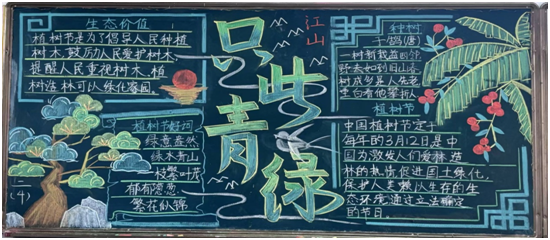 生态价值
植树节是为了倡导人民种植
树木,鼓励人民爱护树木,
提醒人民重视树木。植
树造林可以绿化家园。
植树节好词
绿意盎然
绿水青山
枝繁叶茂
郁郁葱葱
繁花似锦
二(4)
只此青绿
江山
种树
于鹄(唐)
一树新栽益四邻
野夫如到旧山春
树成多是人先老
垂白看他攀折人
植树节
中国植树节定于
每年的3月12日是中
因为激发人们爱林造
林的热情促进国土绿化,
保护人类赖以生存的生
态环境,通过立法确定
的节日。